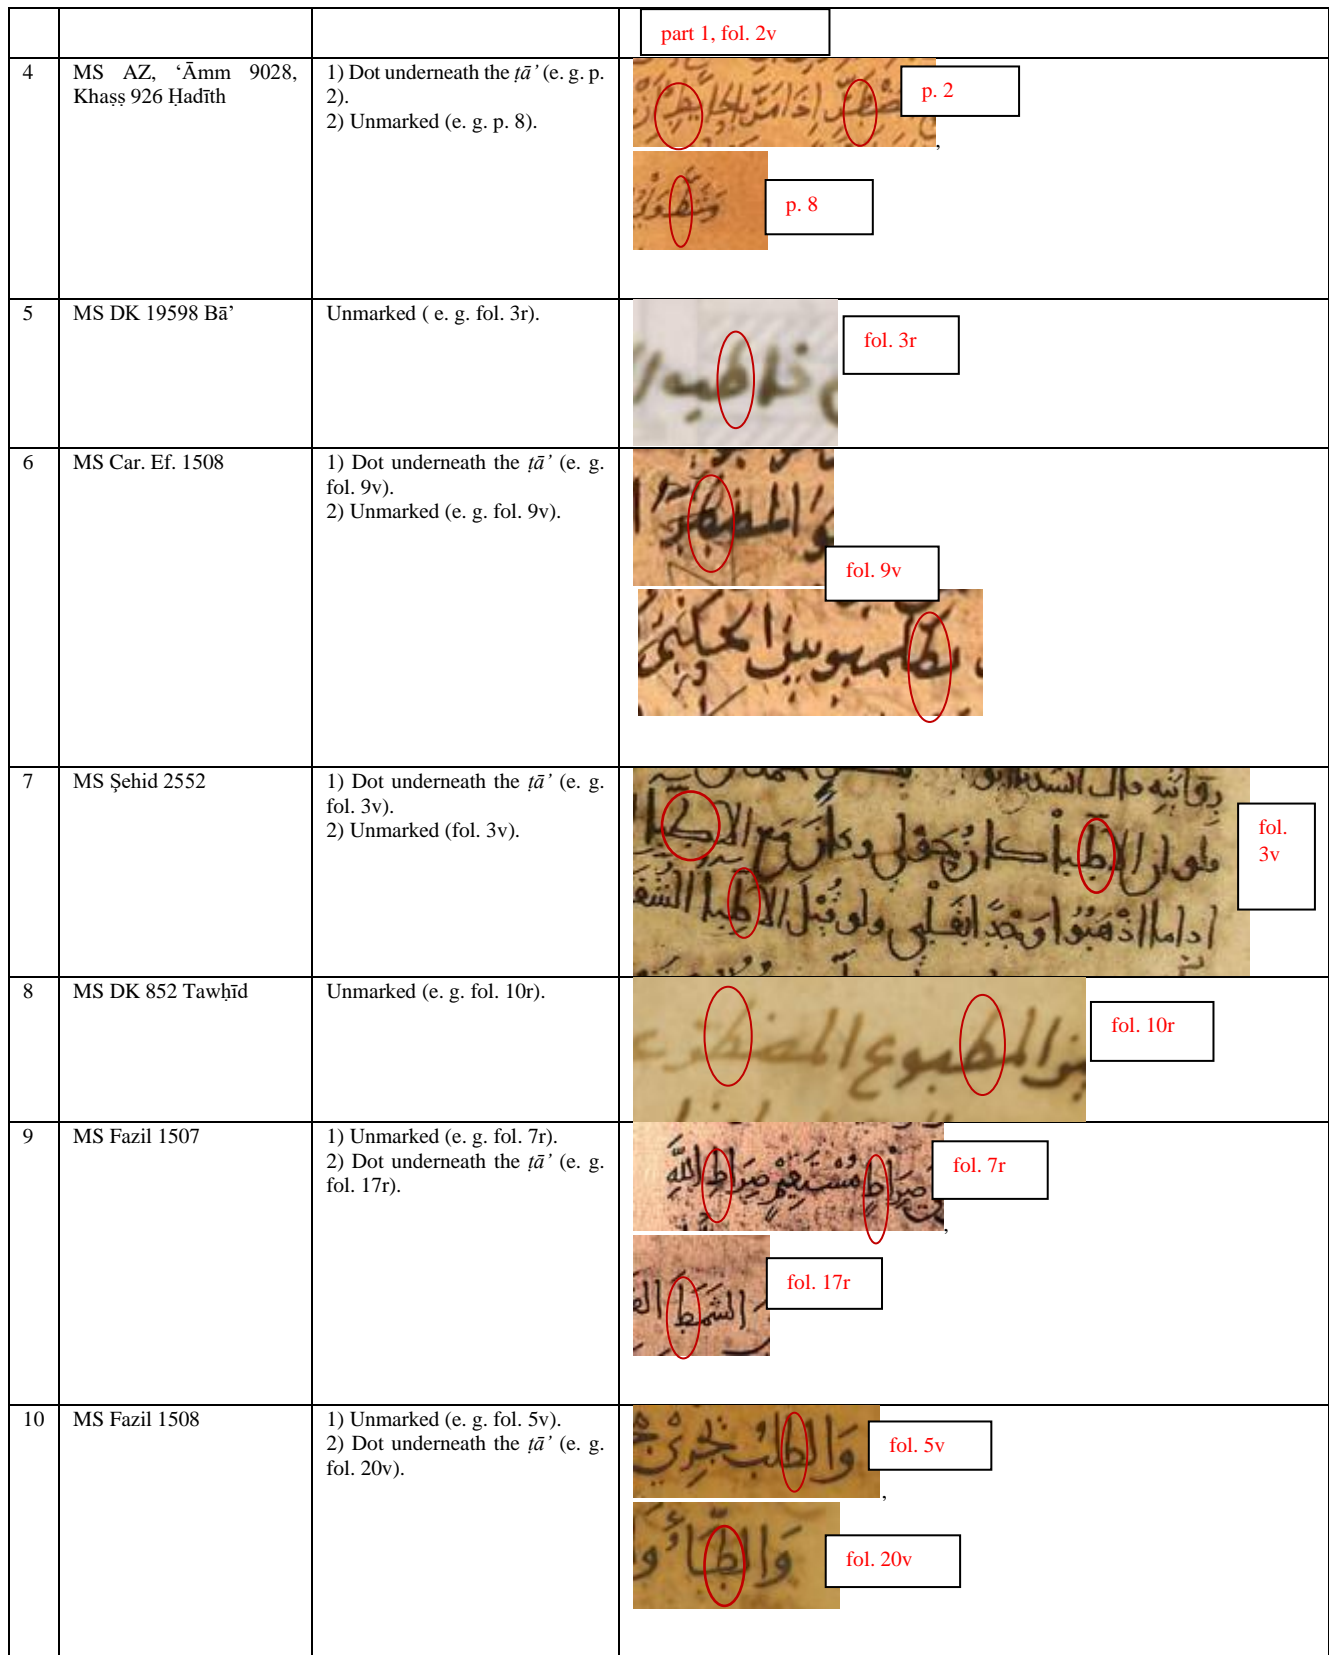 part 1, fol. 2v
4
MS AZ, ‘Āmm 9028,
Khaṣṣ 926 Ḥadīth
1) Dot underneath the ṭā’ (e. g. p.
2).
2) Unmarked (e. g. p. 8).
p. 2
,
p. 8
5
MS DK 19598 Bā’
Unmarked ( e. g. fol. 3r).
fol. 3r
6
MS Car. Ef. 1508
1) Dot underneath the ṭā’ (e. g.
fol. 9v).
2) Unmarked (e. g. fol. 9v).
fol. 9v
7
MS Şehid 2552
1) Dot underneath the ṭā’ (e. g.
fol. 3v).
2) Unmarked (fol. 3v).
fol.
3v
8
MS DK 852 Tawḥīd
Unmarked (e. g. fol. 10r).
المطبوع
fol. 10r
9
MS Fazil 1507
1) Unmarked (e. g. fol. 7r).
2) Dot underneath the ṭā’ (e. g.
fol. 17r).
صِرَاطٍ مُسْتَقِيمٍ صِرَاطِ اللَّهِ
fol. 7r
,
الشَمَطَ
fol. 17r
10
MS Fazil 1508
1) Unmarked (e. g. fol. 5v).
2) Dot underneath the ṭā’ (e. g.
fol. 20v).
fol. 5v
,
وَالطَّاءُ
fol. 20v